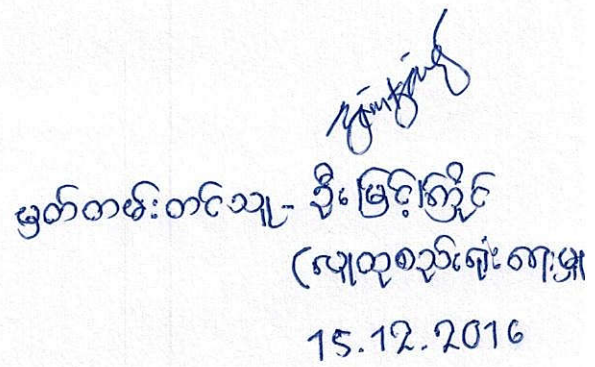 မှတ်တမ်းတင်သူ - ဦးမြင့်ကြိုင်
(လူထုစည်းရုံးရေးမှူ
15.12.2016